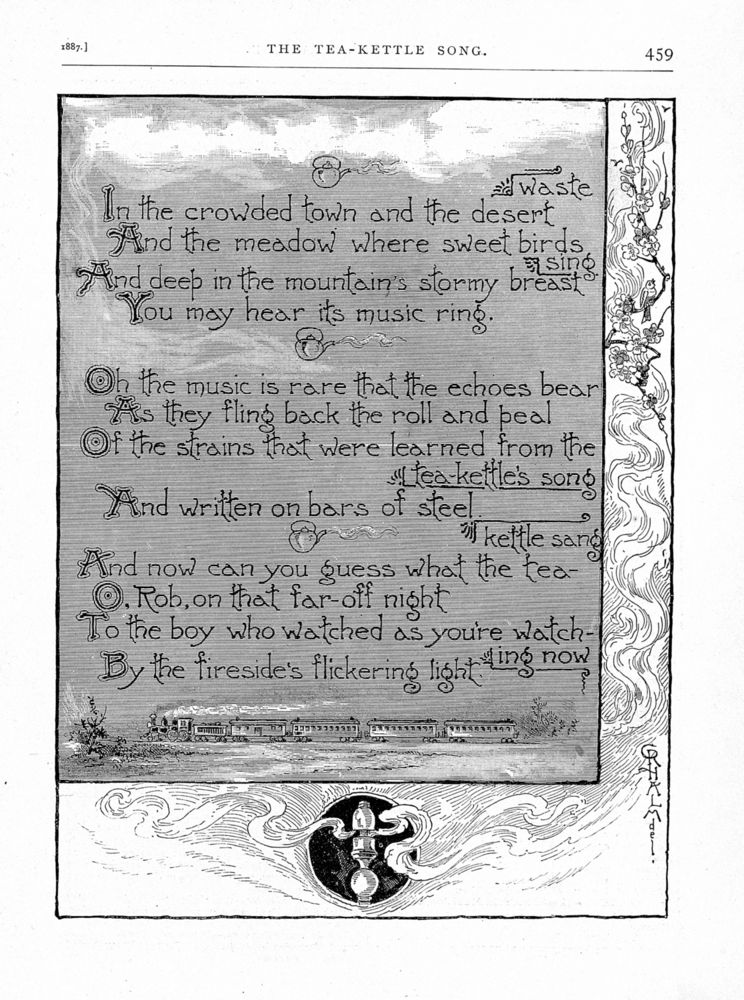 1887.] THE TEA-KETTLE SONG. 459
In the crowded town and the desert waste
And the meadow where sweet birds sing
And deep in the mountain's stormy breast
You may hear its music ring.
Oh the music is rare that the echoes bear
As they fling back the roll and peal
Of the strains that were learned from the tea-kettle's song
And written on bars of steel.
And now can you guess what the tea-kettle sang
O, Rob, on that far-off night
To the boy who watched as you're watch-ing now
By the fireside's flickering light.
GRHALM
del.